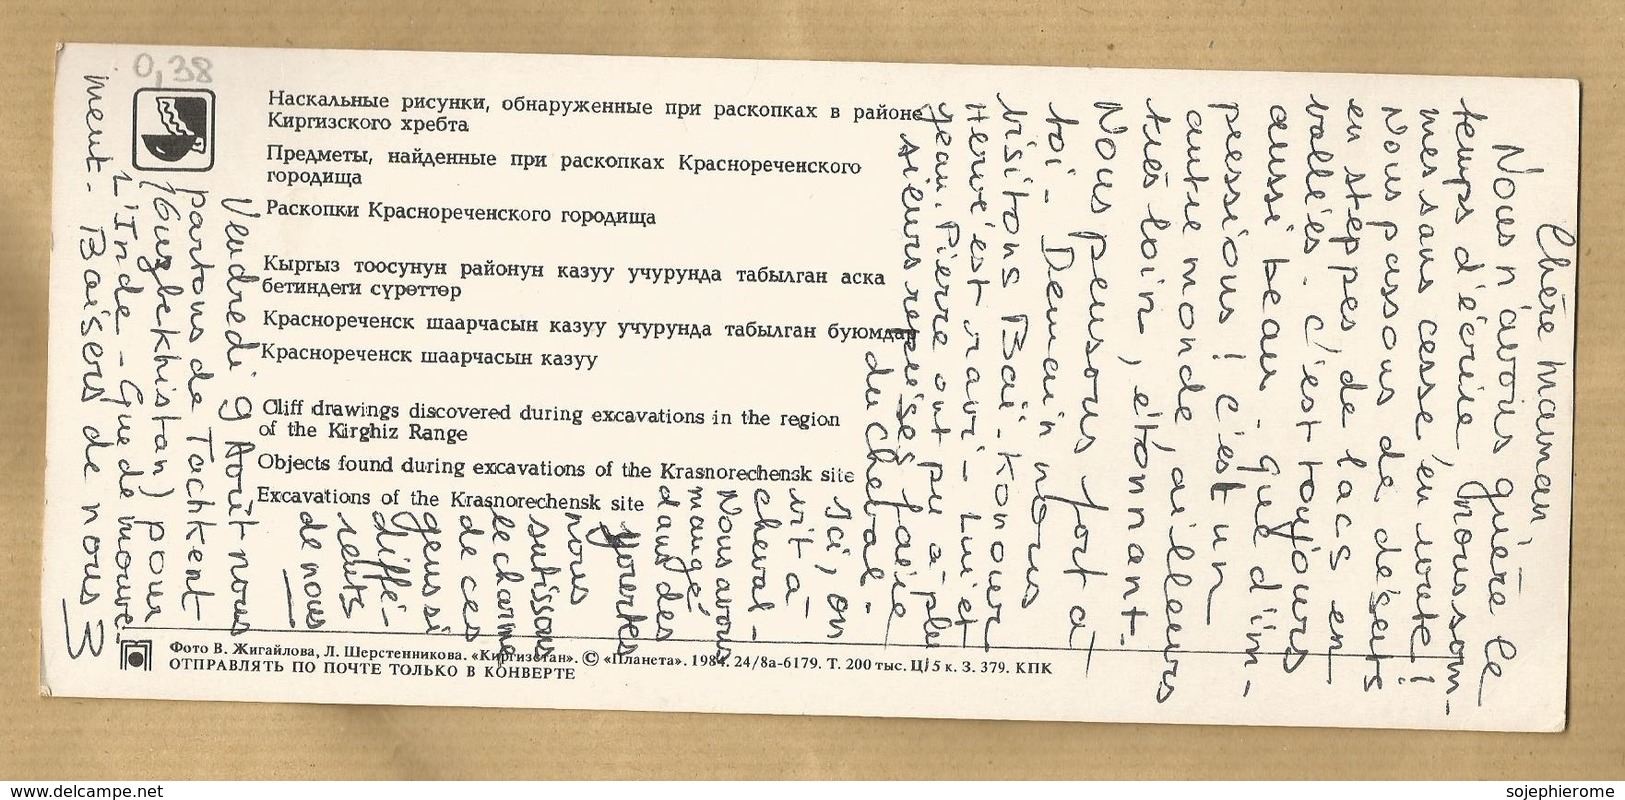 0,38
Наскальные рисунки, обнаруженные при раскопках в районе
Киргизского хребта
Предметы, найденные при раскопках Краснореченского
городища
Раскопки Краснореченского городища
Кыргыз тоосунун районун казуу учурунда табылган аска
бетиндеги сүрөттөр
Краснореченск шаарчасын казуу учурунда табылган буюмдар
Краснореченск шаарчасын казуу
Cliff drawings discovered during excavations in the region
of the Kirghiz Range
Objects found during excavations of the Krasnorechensk site
Excavations of the Krasnorechensk site
Фото В. Жигайлова, Л. Шерстенникова. «Киргизстан». © «Планета». 1984. 24/8а-6179. Т. 200 тыс. Ц 5 к. З. 379. КПК
ОТПРАВЛЯТЬ ПО ПОЧТЕ ТОЛЬКО В КОНВЕРТЕ
Chère maman,
Nous n'avons guère le
temps d'écrire, nous som-
mes sans cesse en route !
Nous passons de déserts
en steppes, de lacs en
vallées. C'est toujours
aussi beau. que d'im-
pressions ! C'est un
autre monde, ailleurs
très loin, étonnant.
Nous pensons fort à
toi. Demain nous
visitons Baï-Konour
Hervé est ravi - Lui et
Jean-Pierre ont pu à plu
sieurs reprises faire
du cheval.
Ici, on
vit à
cheval -
Nous avons
mangé
dans des
yourtes
nous
subissons
le charme
de ces
gens si
diffé-
rents
de nous
Vendredi 9 Août nous
partons de Tachkent
(Ouzbekhistan) pour
L'Inde - Que de mouve-
ment. Baisers de nous 3
delcampe.net
sojephierome